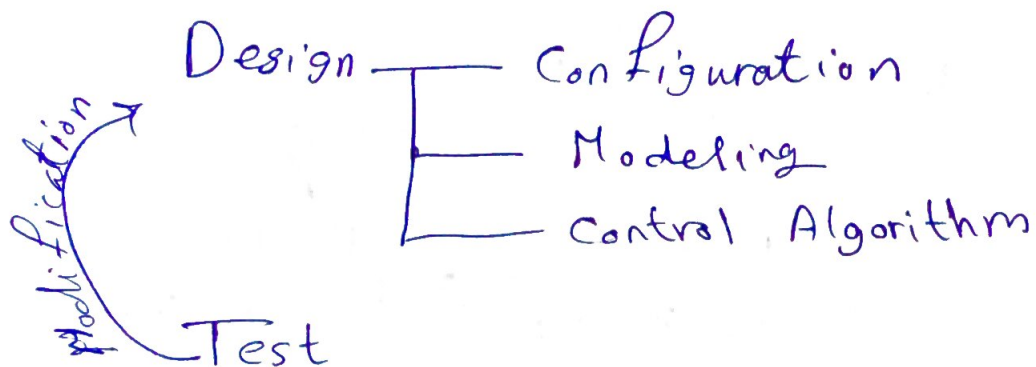 Design
Configuration
Modeling
Control Algorithm
Modification
Test